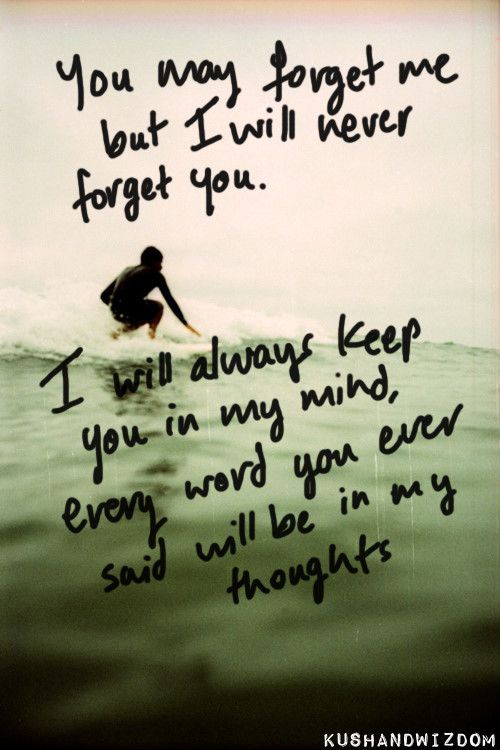 You may forget me
but I will never
forget you.
I will always keep
you in my mind,
every word you ever
said will be in my
thoughts
KUSHANDWIZDOM